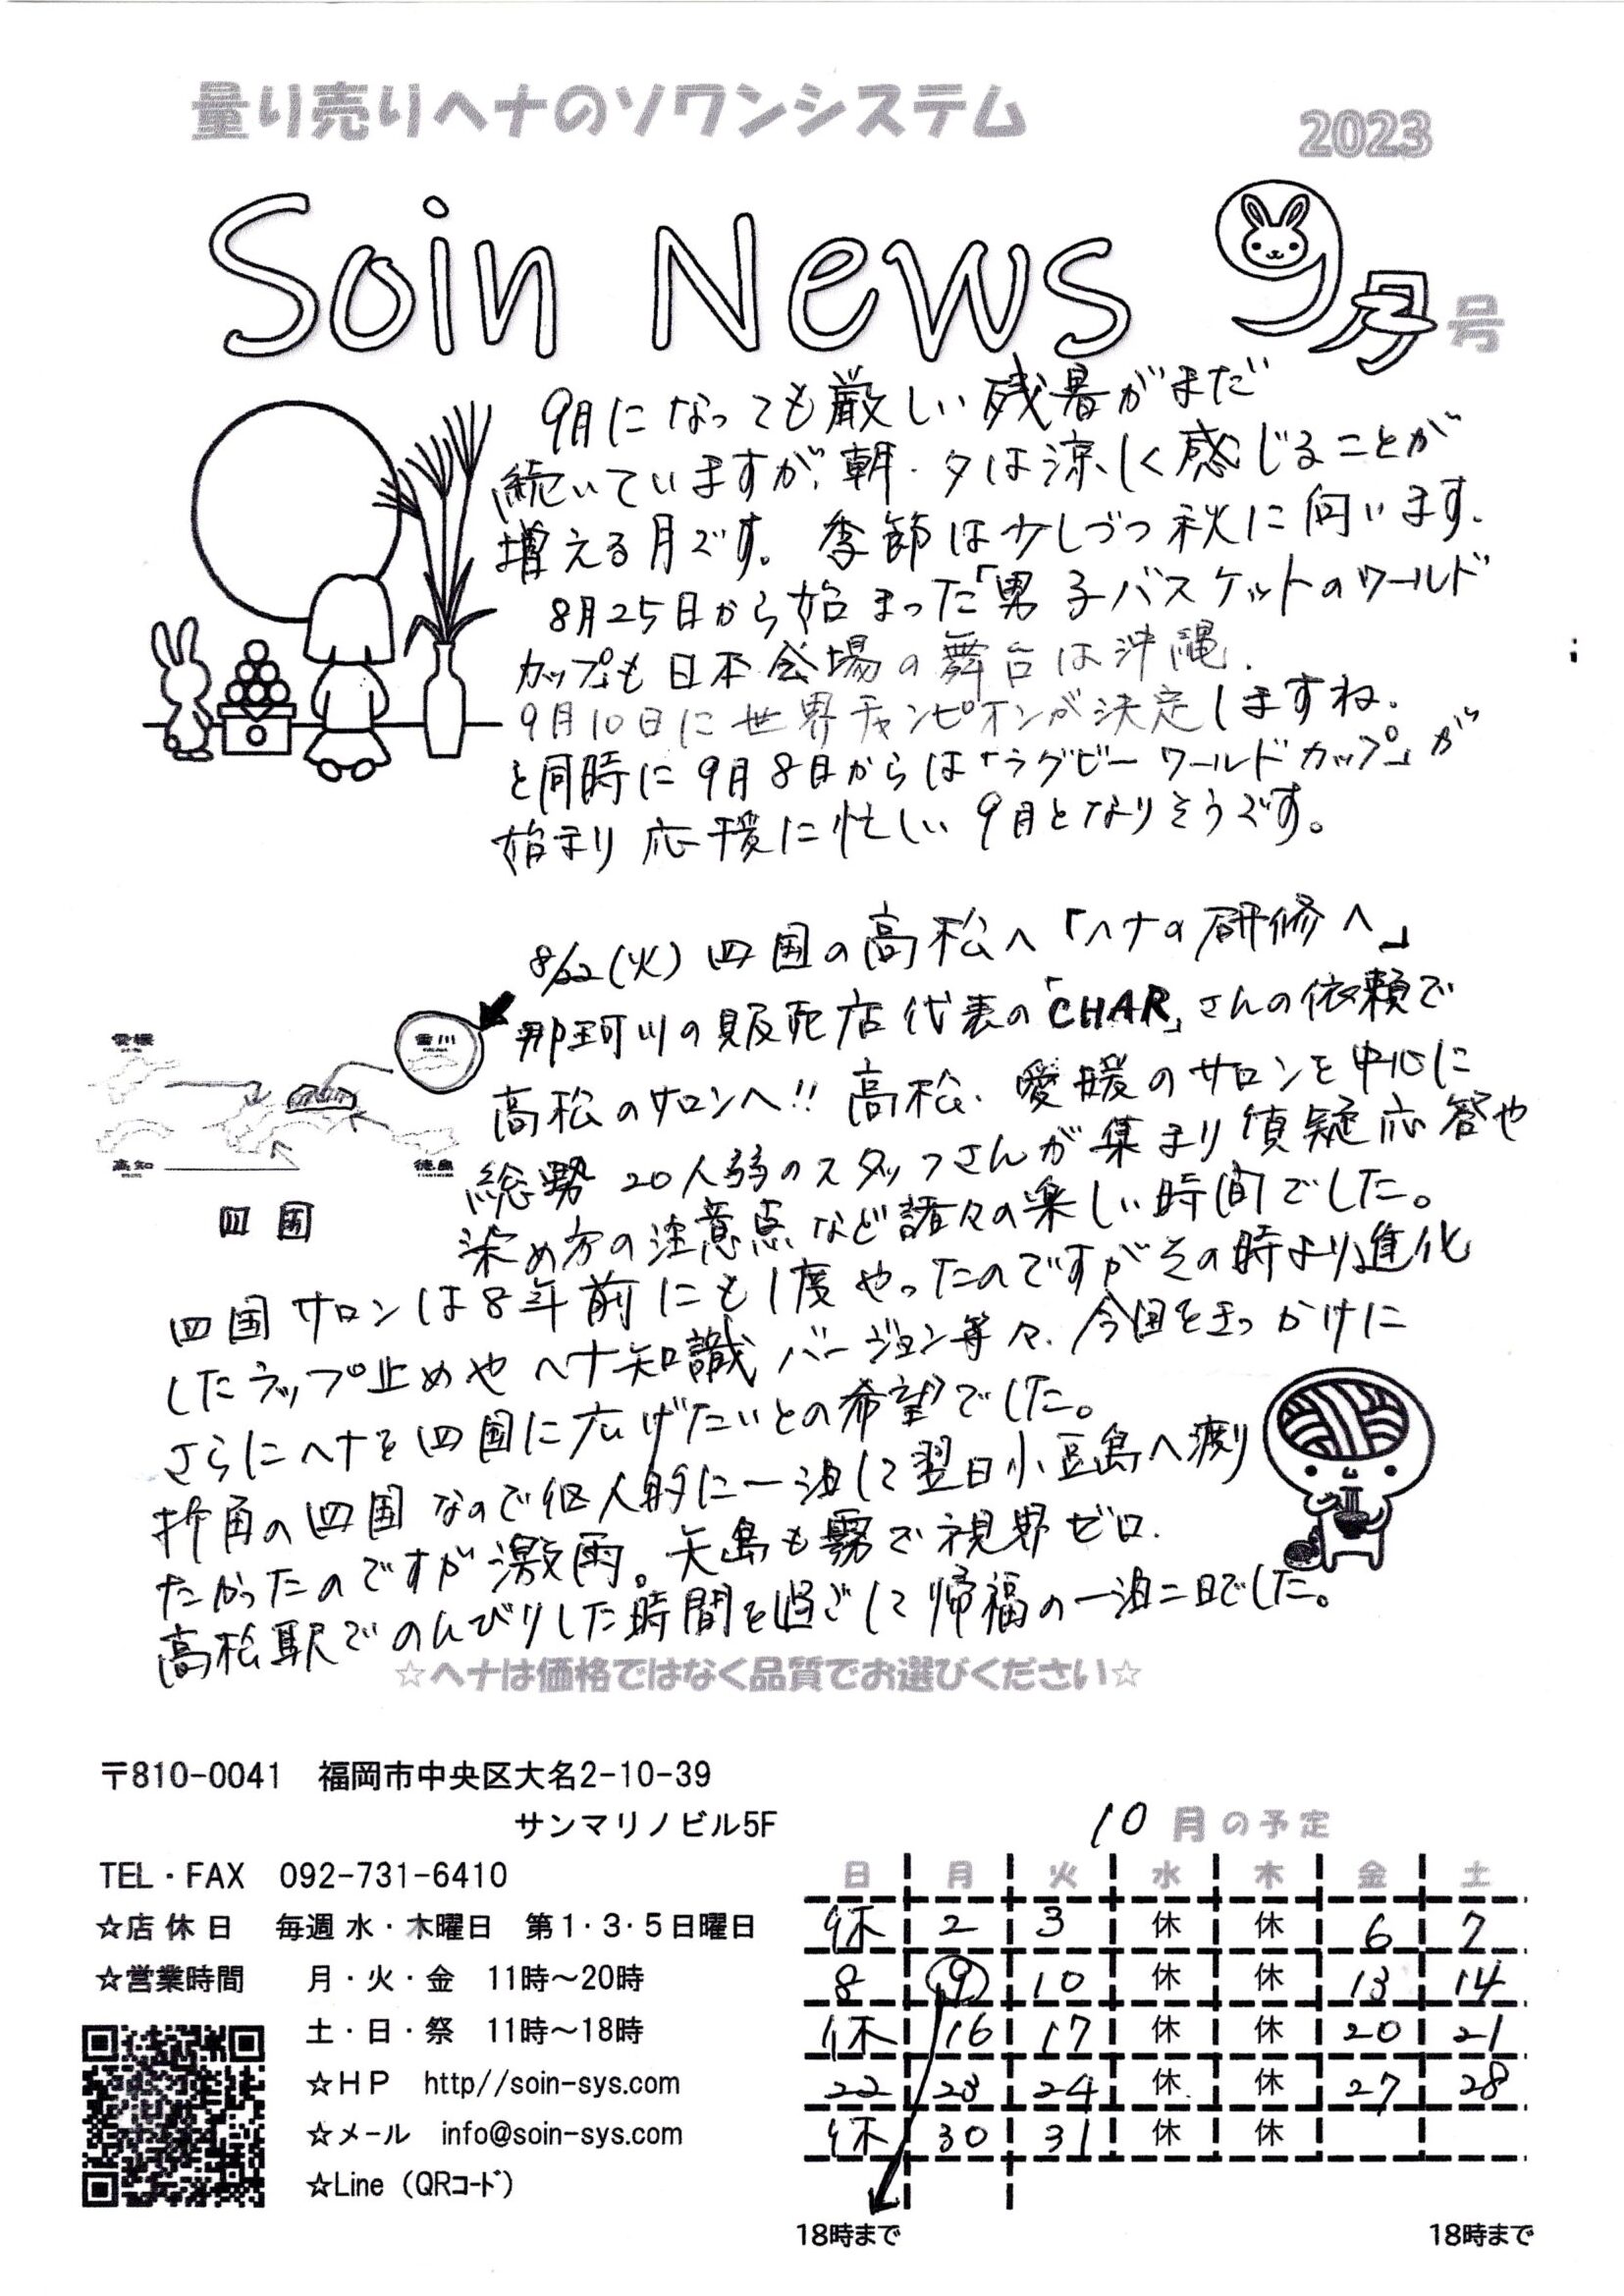 量り売りヘナのソワンシステム
2023
Soin News 9月号
9月になっても厳しい残暑がまだ
続いていますが、朝・夕は涼しく感じることが
増える月です。季節は少しづつ秋に向います.
8月25日から始まった「男子バスケットのワールド
カップ」も日本会場の舞台は沖縄.
9月10日に世界チャンピオンが決定しますね.
と同時に9月8日からは「ラグビーワールドカップ」が
始まり応援に忙しい9月となりそうです。
8/22(火)四国の高松へ「ヘナの研修へ」
那珂川の販売店代表の「CHAR」さんの依頼で
高松のサロンへ!! 高松、愛媛のサロンを中心に
総勢20人弱のスタッフさんが集まり質疑応答や
染め方の注意点など諸々の楽しい時間でした。
愛媛
香川
高知
徳島
四国
四国サロンは8年前にも1度やったのですがその時より進化
したラップ止めやヘナ知識バージョン等々.今回をきっかけに
さらにヘナを四国に広げたいとの希望でした。
折角の四国なので個人的に一泊して翌日小豆島へ渡り
たかったのですが激雨。矢島も霧で視界ゼロ.
高松駅でのんびりした時間を過ごして帰福の一泊二日でした。
☆ヘナは価格ではなく品質でお選びください☆
〒810-0041 福岡市中央区大名2-10-39
サンマリノビル5F
TEL・FAX 092-731-6410
☆店休日 毎週 水・木曜日 第1・3・5日曜日
☆営業時間 月・火・金 11時～20時
土・日・祭 11時～18時
☆HP http//soin-sys.com
☆メール info@soin-sys.com
☆Line（QRコード）
10月の予定
日 月 火 水 木 金 土
休 2 3 休 休 6 7
8 9 10 休 休 13 14
休 16 17 休 休 20 21
22 23 24 休 休 27 28
休 30 31 休 休
18時まで 18時まで